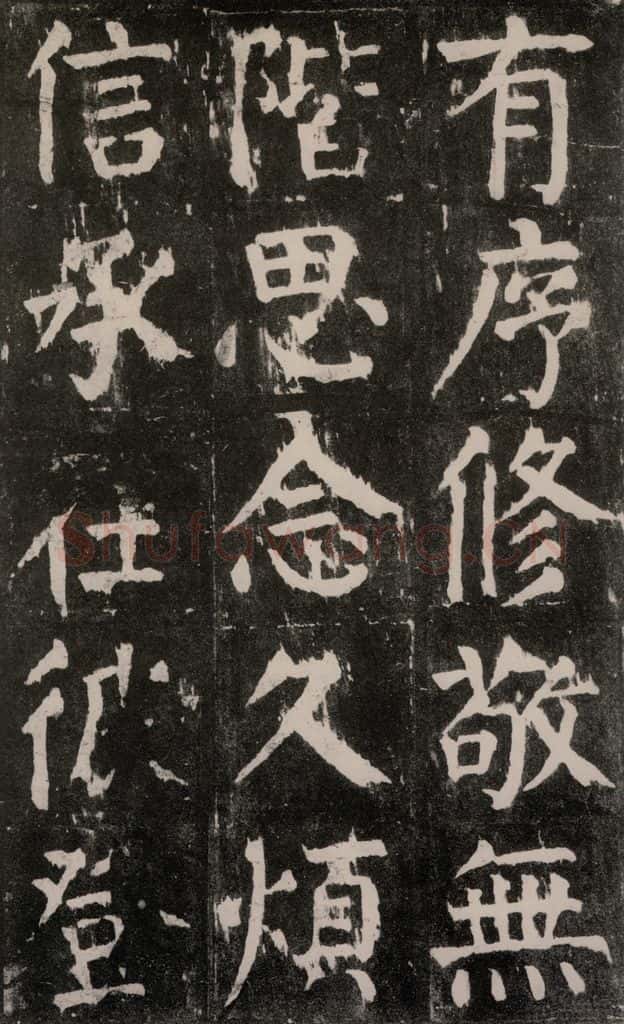 有序修敬無
階思念久煩
信承仕登
Shufawang.CN